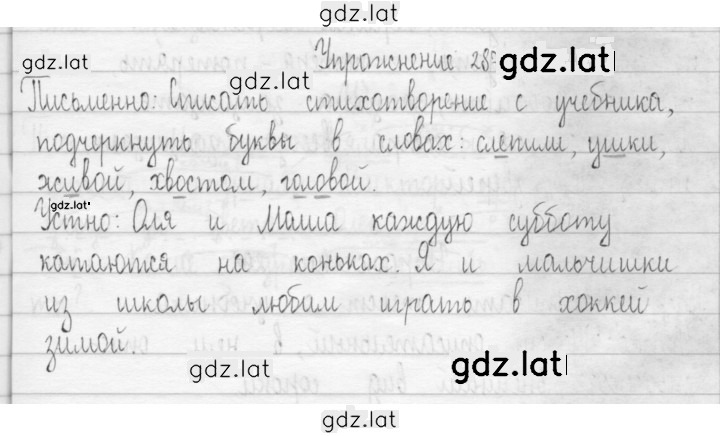 gdz.lat
gdz.lat
Упражнение gdz.lat
gdz.lat
Письменно: Списать стихотворение с учебника,
подчеркнуть буквы в словах: слепили, ушки,
живой, хвостом, головой.
gdz.lat
Устно: Оля и Маша каждую субботу
катаются на коньках. Я и мальчишки
из школы любим играть в хоккей
зимой.
gdz.lat
gdz.lat
gdz.lat